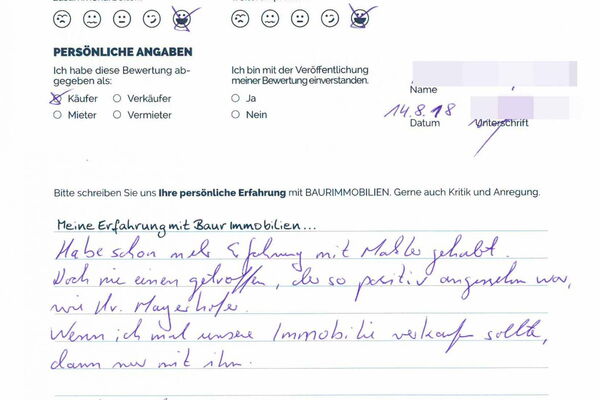 PERSÖNLICHE ANGABEN
Ich habe diese Bewertung ab-
gegeben als:
Käufer Verkäufer
Mieter Vermieter
Ich bin mit der Veröffentlichung
meiner Bewertung einverstanden.
Ja
Nein
Name
14.8.18
Datum Unterschrift
Bitte schreiben Sie uns Ihre persönliche Erfahrung mit BAURIMMOBILIEN. Gerne auch Kritik und Anregung.
Meine Erfahrung mit Baur Immobilien...
Habe schon mehr Erfahrung mit Makler gehabt.
Doch nie einen getroffen, der so positiv angesehn war,
wie Hr. Mayerhofer.
Wenn ich mal unsere Immobilie verkaufen sollte,
dann nur mit ihm.